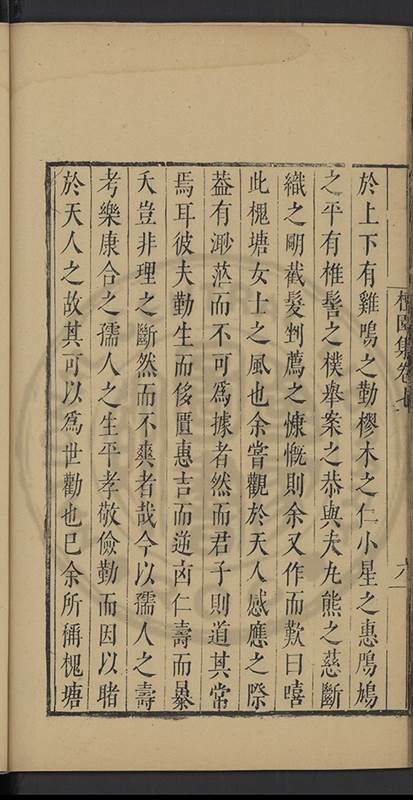 於上下有雞鳴之勤樛木之仁小星之惠鳲鳩
之平有椎髻之樸舉案之恭與夫丸熊之慈斷
織之明截髮剉薦之慷慨則余又作而歎曰嘻
此槐塘女士之風也余嘗觀於天人感應之際
葢有渺茫而不可爲據者然而君子則道其常
焉耳彼夫勤生而侈匱惠吉而逆凶仁壽而暴
夭豈非理之斷然而不爽者哉今以孺人之壽
考樂康合之孺人之生平孝敬儉勤而因以睹
於天人之故其可以爲世勸也巳余所稱槐塘
園集卷七
六